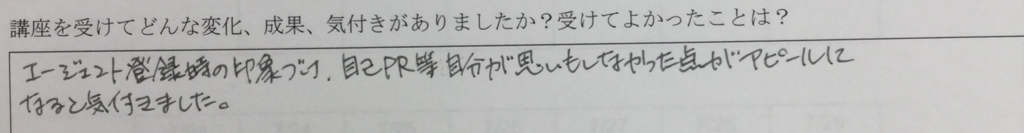 講座を受けてどんな変化、成果、気付きがありましたか？受けてよかったことは？
エージェント登録時の印象づけ、自己PR等自分が思いもしなかった点がアピールに
なると気付きました。